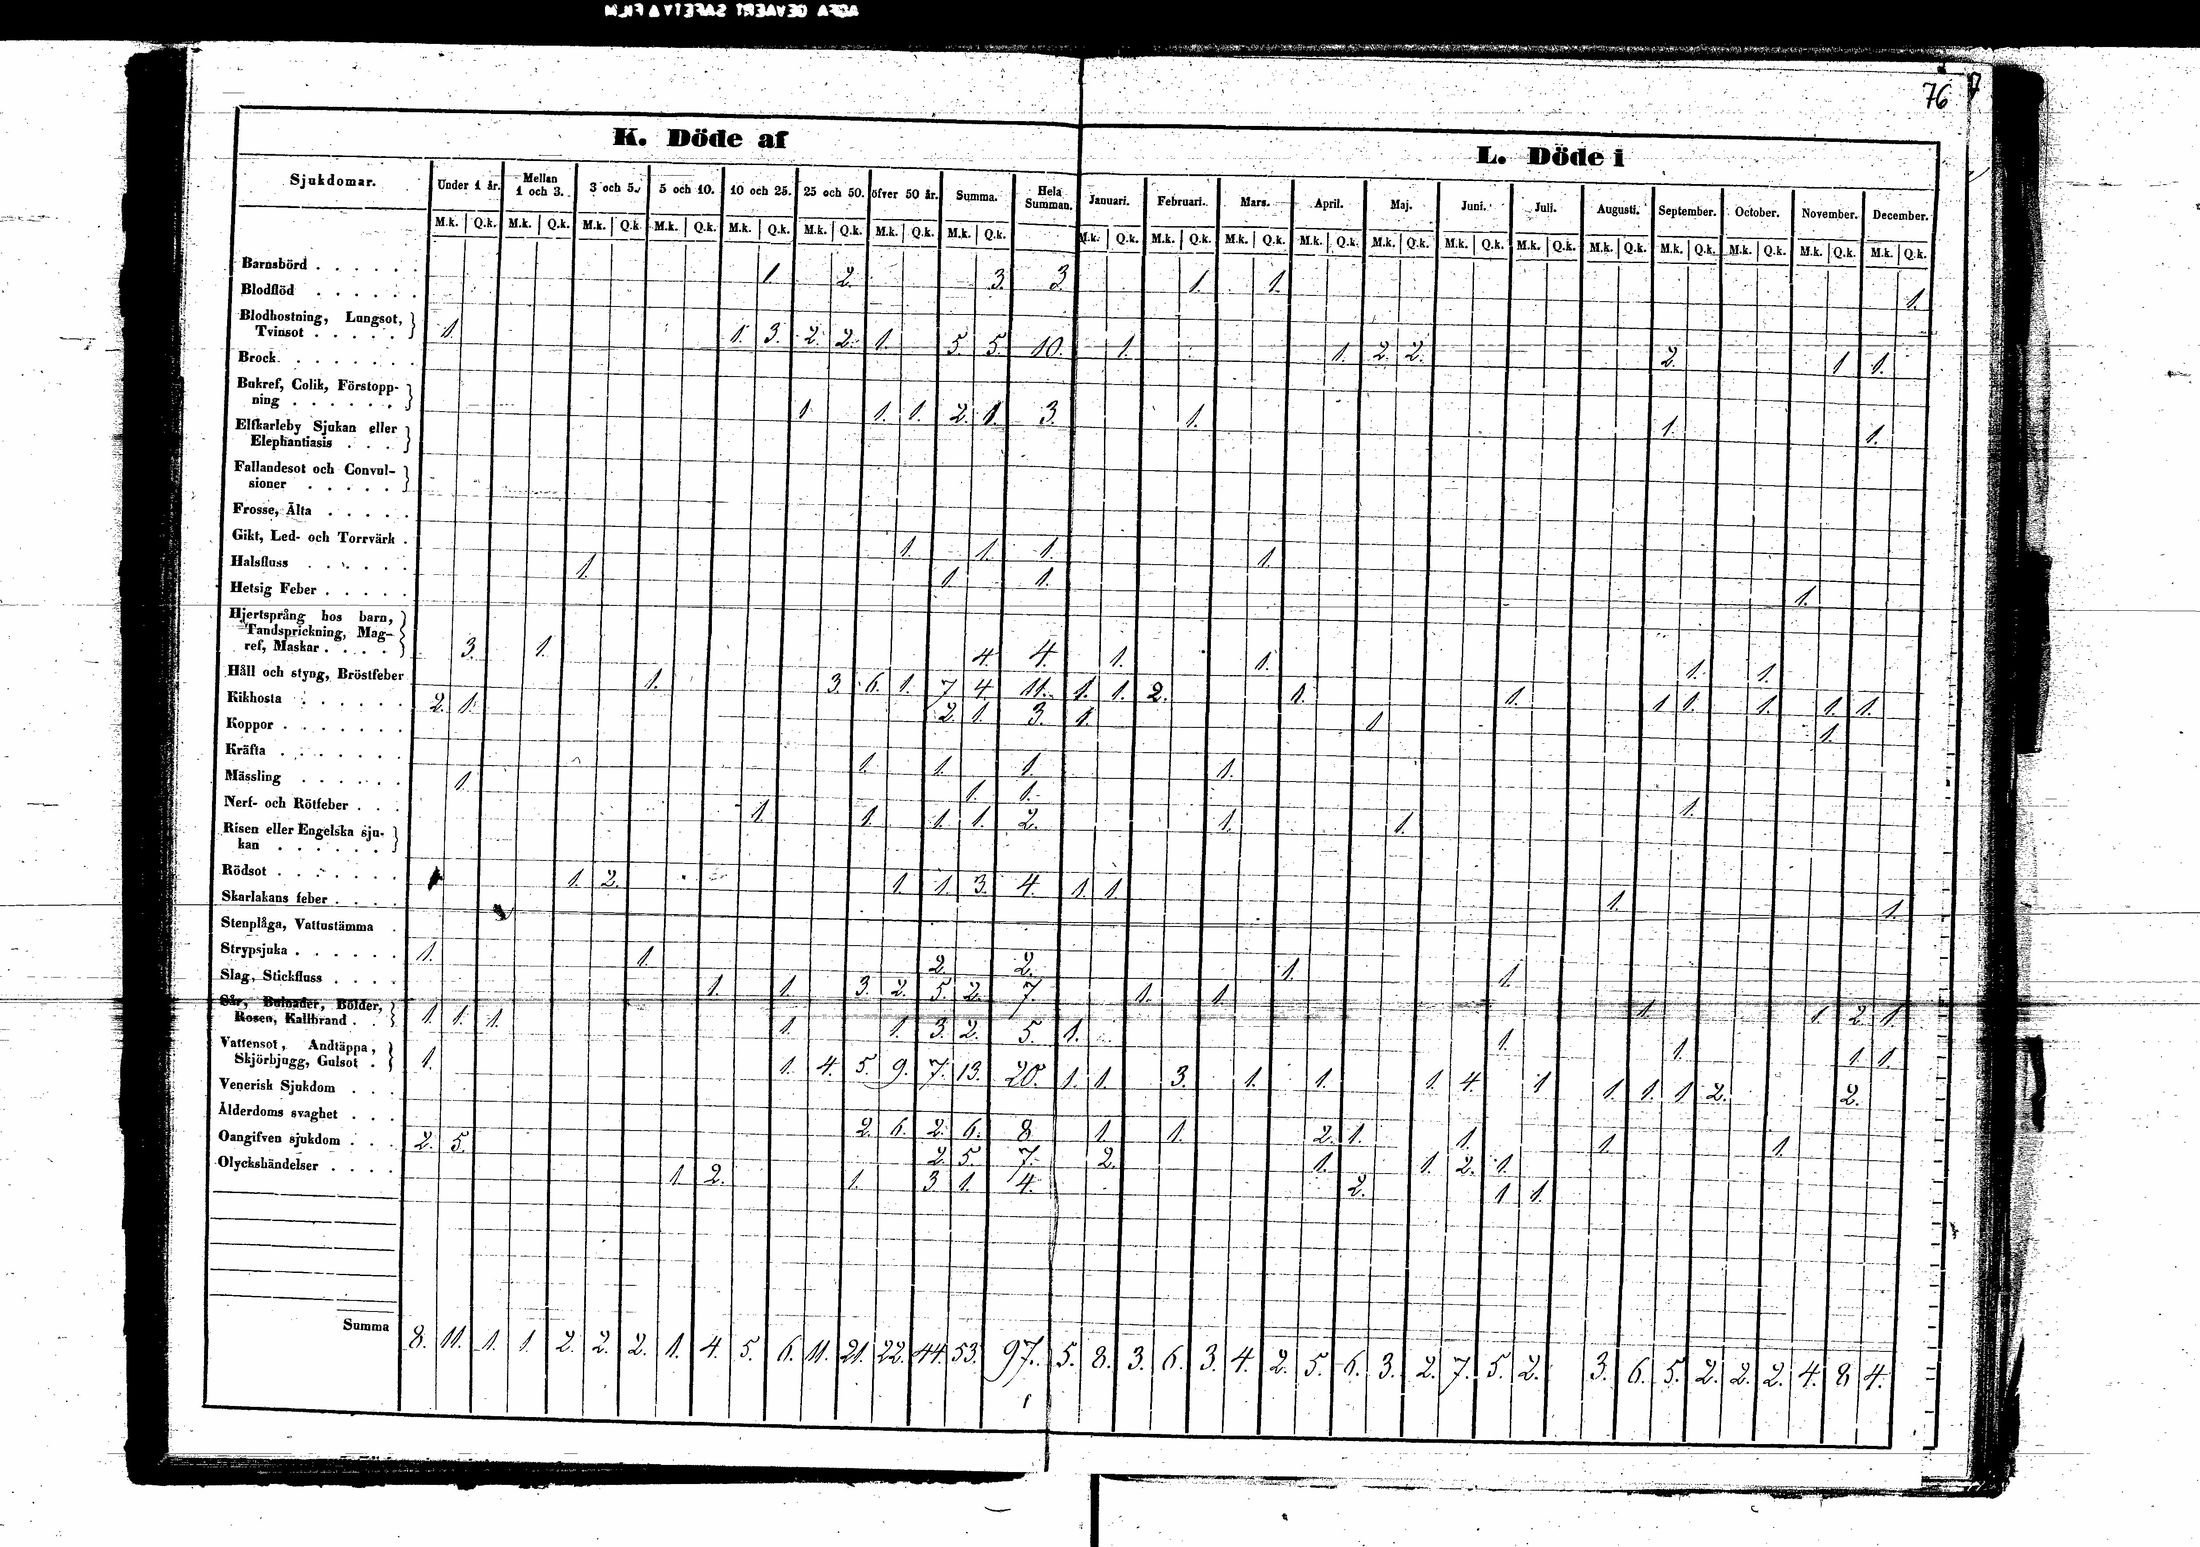 AGFA GEVAERT SAFETY FILM
76
K. Döde af
L. Döde i
Sjukdomar. Under 1 år. Mellan 1 och 3. 3 och 5. 5 och 10. 10 och 25. 25 och 50. öfver 50 år. Summa. Hela Summan. Januari. Februari. Mars. April. Maj. Juni. Juli. Augusti. September. October. November. December.
M.k. Q.k. M.k. Q.k. M.k. Q.k. M.k. Q.k. M.k. Q.k. M.k. Q.k. M.k. Q.k. M.k. Q.k. M.k. Q.k. M.k. Q.k. M.k. Q.k. M.k. Q.k. M.k. Q.k. M.k. Q.k. M.k. Q.k. M.k. Q.k. M.k. Q.k. M.k. Q.k. M.k. Q.k. M.k. Q.k.
Barnsbörd . . . . . . 1. 2. 3. 3. 1. 1. 1.
Blodflöd . . . . . .
Blodhostning, Lungsot,
Tvinsot . . . . . 1. 1. 3. 2. 2. 1. 5. 5. 10. 1. 1. 2. 2. 2. 1 1.
Brock . . . . . . .
Bukref, Colik, Förstopp-
ning . . . . . . 1 1. 1. 2. 1. 3. 1. 1. 1.
Elfkarleby Sjukan eller
Elephantiasis . . .
Fallandesot och Convul-
sioner . . . . .
Frosse, Älta . . . . .
Gikt, Led- och Torrvärk . 1. 1. 1. 1.
Halsfluss . . . . . . 1. 1. 1. 1.
Hetsig Feber . . . . .
Hjertsprång hos barn,
Tandsprickning, Mag-
ref, Maskar . . . . 3. 1. 4. 4. 1. 1. 1. 1.
Håll och styng, Bröstfeber 1. 3. 6. 1. 7. 4. 11. 1. 1. 2. 1. 1. 1 1. 1. 1. 1.
Kikhosta . . . . . . 2. 1. 2. 1. 3. 1. 1 1.
Koppor . . . . . . .
Kräfta . . . . . . . 1. 1. 1. 1.
Mässling . . . . . . 1. 1. 1. 1.
Nerf- och Rötfeber . . . 1. 1. 1. 1. 2. 1. 1.
Risen eller Engelska sju-
kan . . . . . .
Rödsot . . . . . . . 1. 2. 1. 1. 3. 4. 1. 1. 1. 1.
Skarlakans feber . . . .
Stenplåga, Vattustämma .
Strypsjuka . . . . . . 1. 1. 2. 2. 1. 1.
Slag, Stickfluss . . . . 1. 1. 3. 2. 5. 2. 7. 1. 1. 1. 1. 2. 1.
Sår, Bulnader, Bölder,
Rosen, Kallbrand . . 1. 1. 1. 1. 1. 3. 2. 5. 1. 1. 1. 1. 1.
Vattensot, Andtäppa,
Skjörbjugg, Gulsot . 1. 1. 4. 5. 9. 7. 13. 20. 1. 1. 3. 1. 1. 1. 4. 1 1. 1. 1 2. 2.
Venerisk Sjukdom . . .
Ålderdoms svaghet . . . 2. 6. 2. 6. 8 1. 1. 2. 1. 1. 1. 1.
Oangifven sjukdom . . . 2. 5. 2. 5. 7. 2. 1. 1. 2. 1.
Olyckshändelser . . . . 1 2. 1. 3. 1. 4. 2. 1 1.
Summa 8. 11. 1. 1. 2. 2. 2. 1. 4. 5. 6. 11. 21. 22. 44. 53. 97. 5. 8. 3. 6. 3. 4. 2. 5. 6. 3. 2. 7. 5. 2. 3. 6. 5. 2. 2. 2. 4. 8 4.